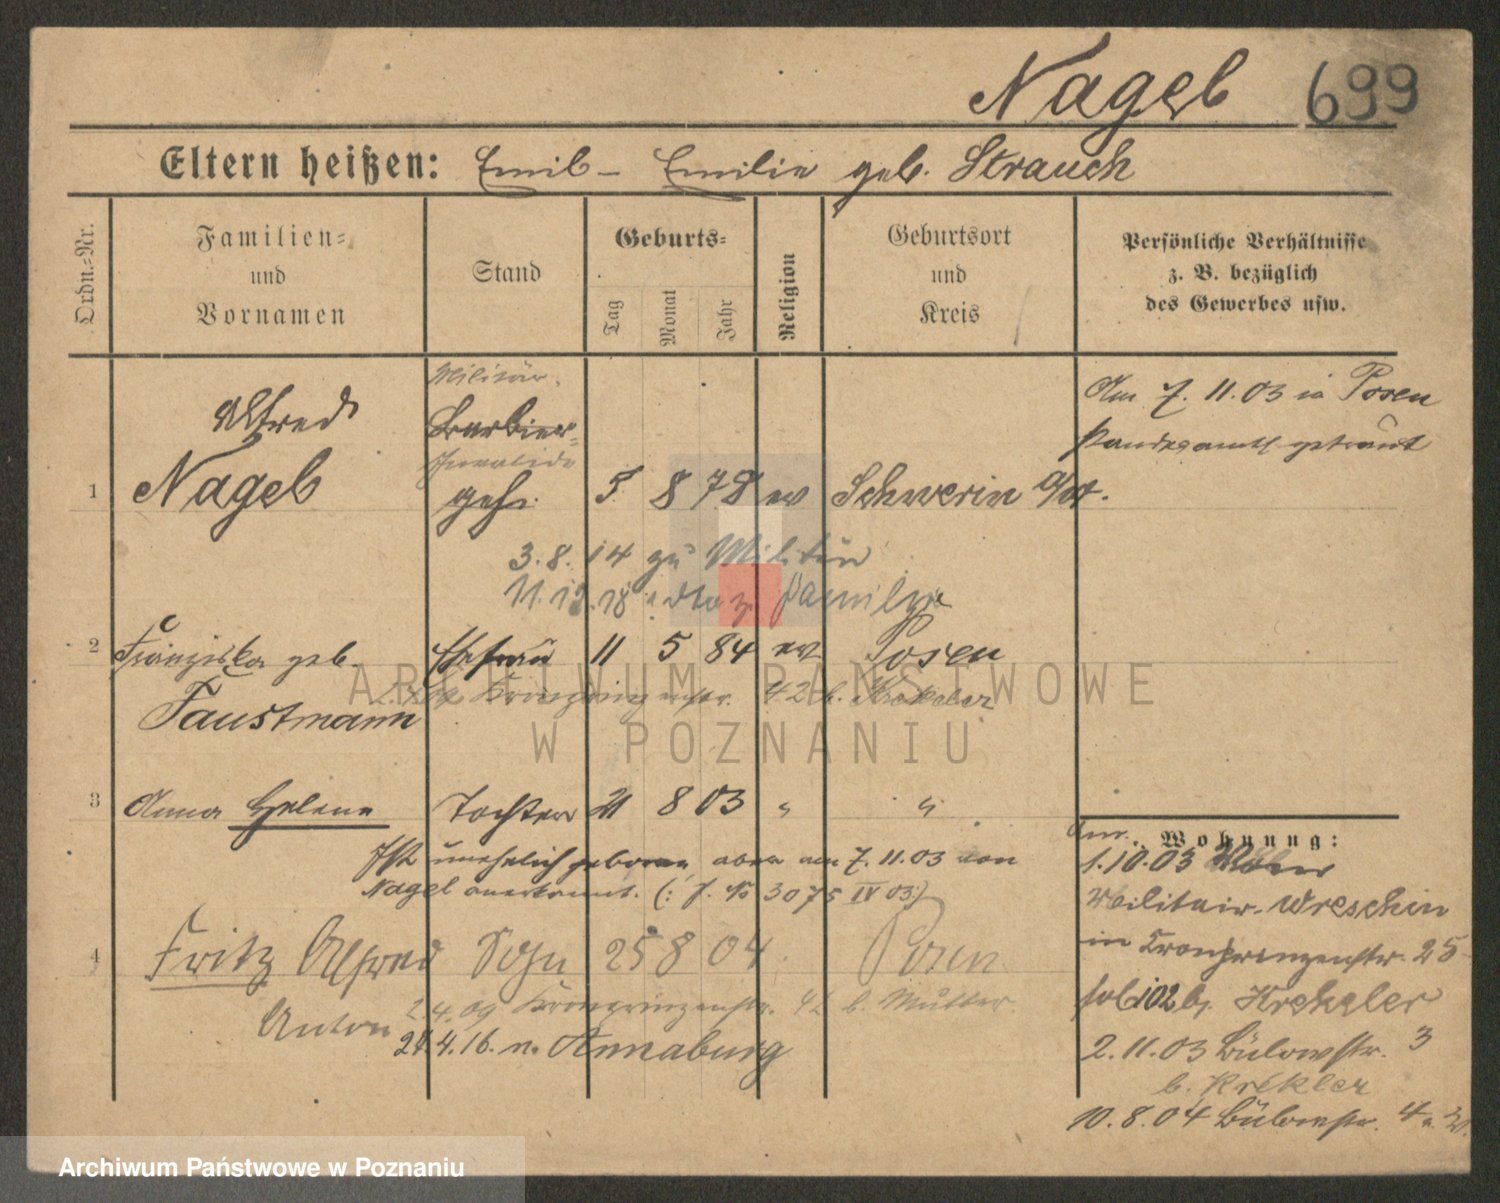 Nagel 699
Eltern heißen: Emil – Emilie geb. Strauch
Ordn.=Nr.
Familien=
und
Vornamen
Stand
Geburts=
Tag
Monat
Jahr
Religion
Geburtsort
und
Kreis
Persönliche Verhältnisse
z. B. bezüglich
des Gewerbes usw.
Militär-
Alfred Barbier=
Invalide
1 Nagel geh. 5 8 78 ev Schwerin a/W.
Am 7. 11. 03 in Posen
Standesamtl. getraut
3. 8. 14 zu Militär
11. 12. 18 Familye
2 Franziska geb. Ehefrau 11 5 84 ev Posen
Kronprinzenstr. 42 b. Krekeler
Faustmann
3 Anna Helene Tochter 21 8 03 " "
Ist unehelich geboren aber am 7. 11. 03 von
Nagel anerkannt. (: J. No 3075 IV 03:)
4 Fritz Alfred Sohn 25 8 04 Posen
Anton 2. 4. 09 Kronprinzenstr. 42 b. Mutter
24 4. 16. n. Annaburg
Wohnung:
1. 10. 03
Militair. Wreschin
in Kronprinzenstr. 25
102 b. Krekeler
2. 11. 03 Bülowstr. 3
b. Krekler
10. 8. 04 Bülowstr. 4
ARCHIWUM PAŃSTWOWE
W POZNANIU
Archiwum Państwowe w Poznaniu